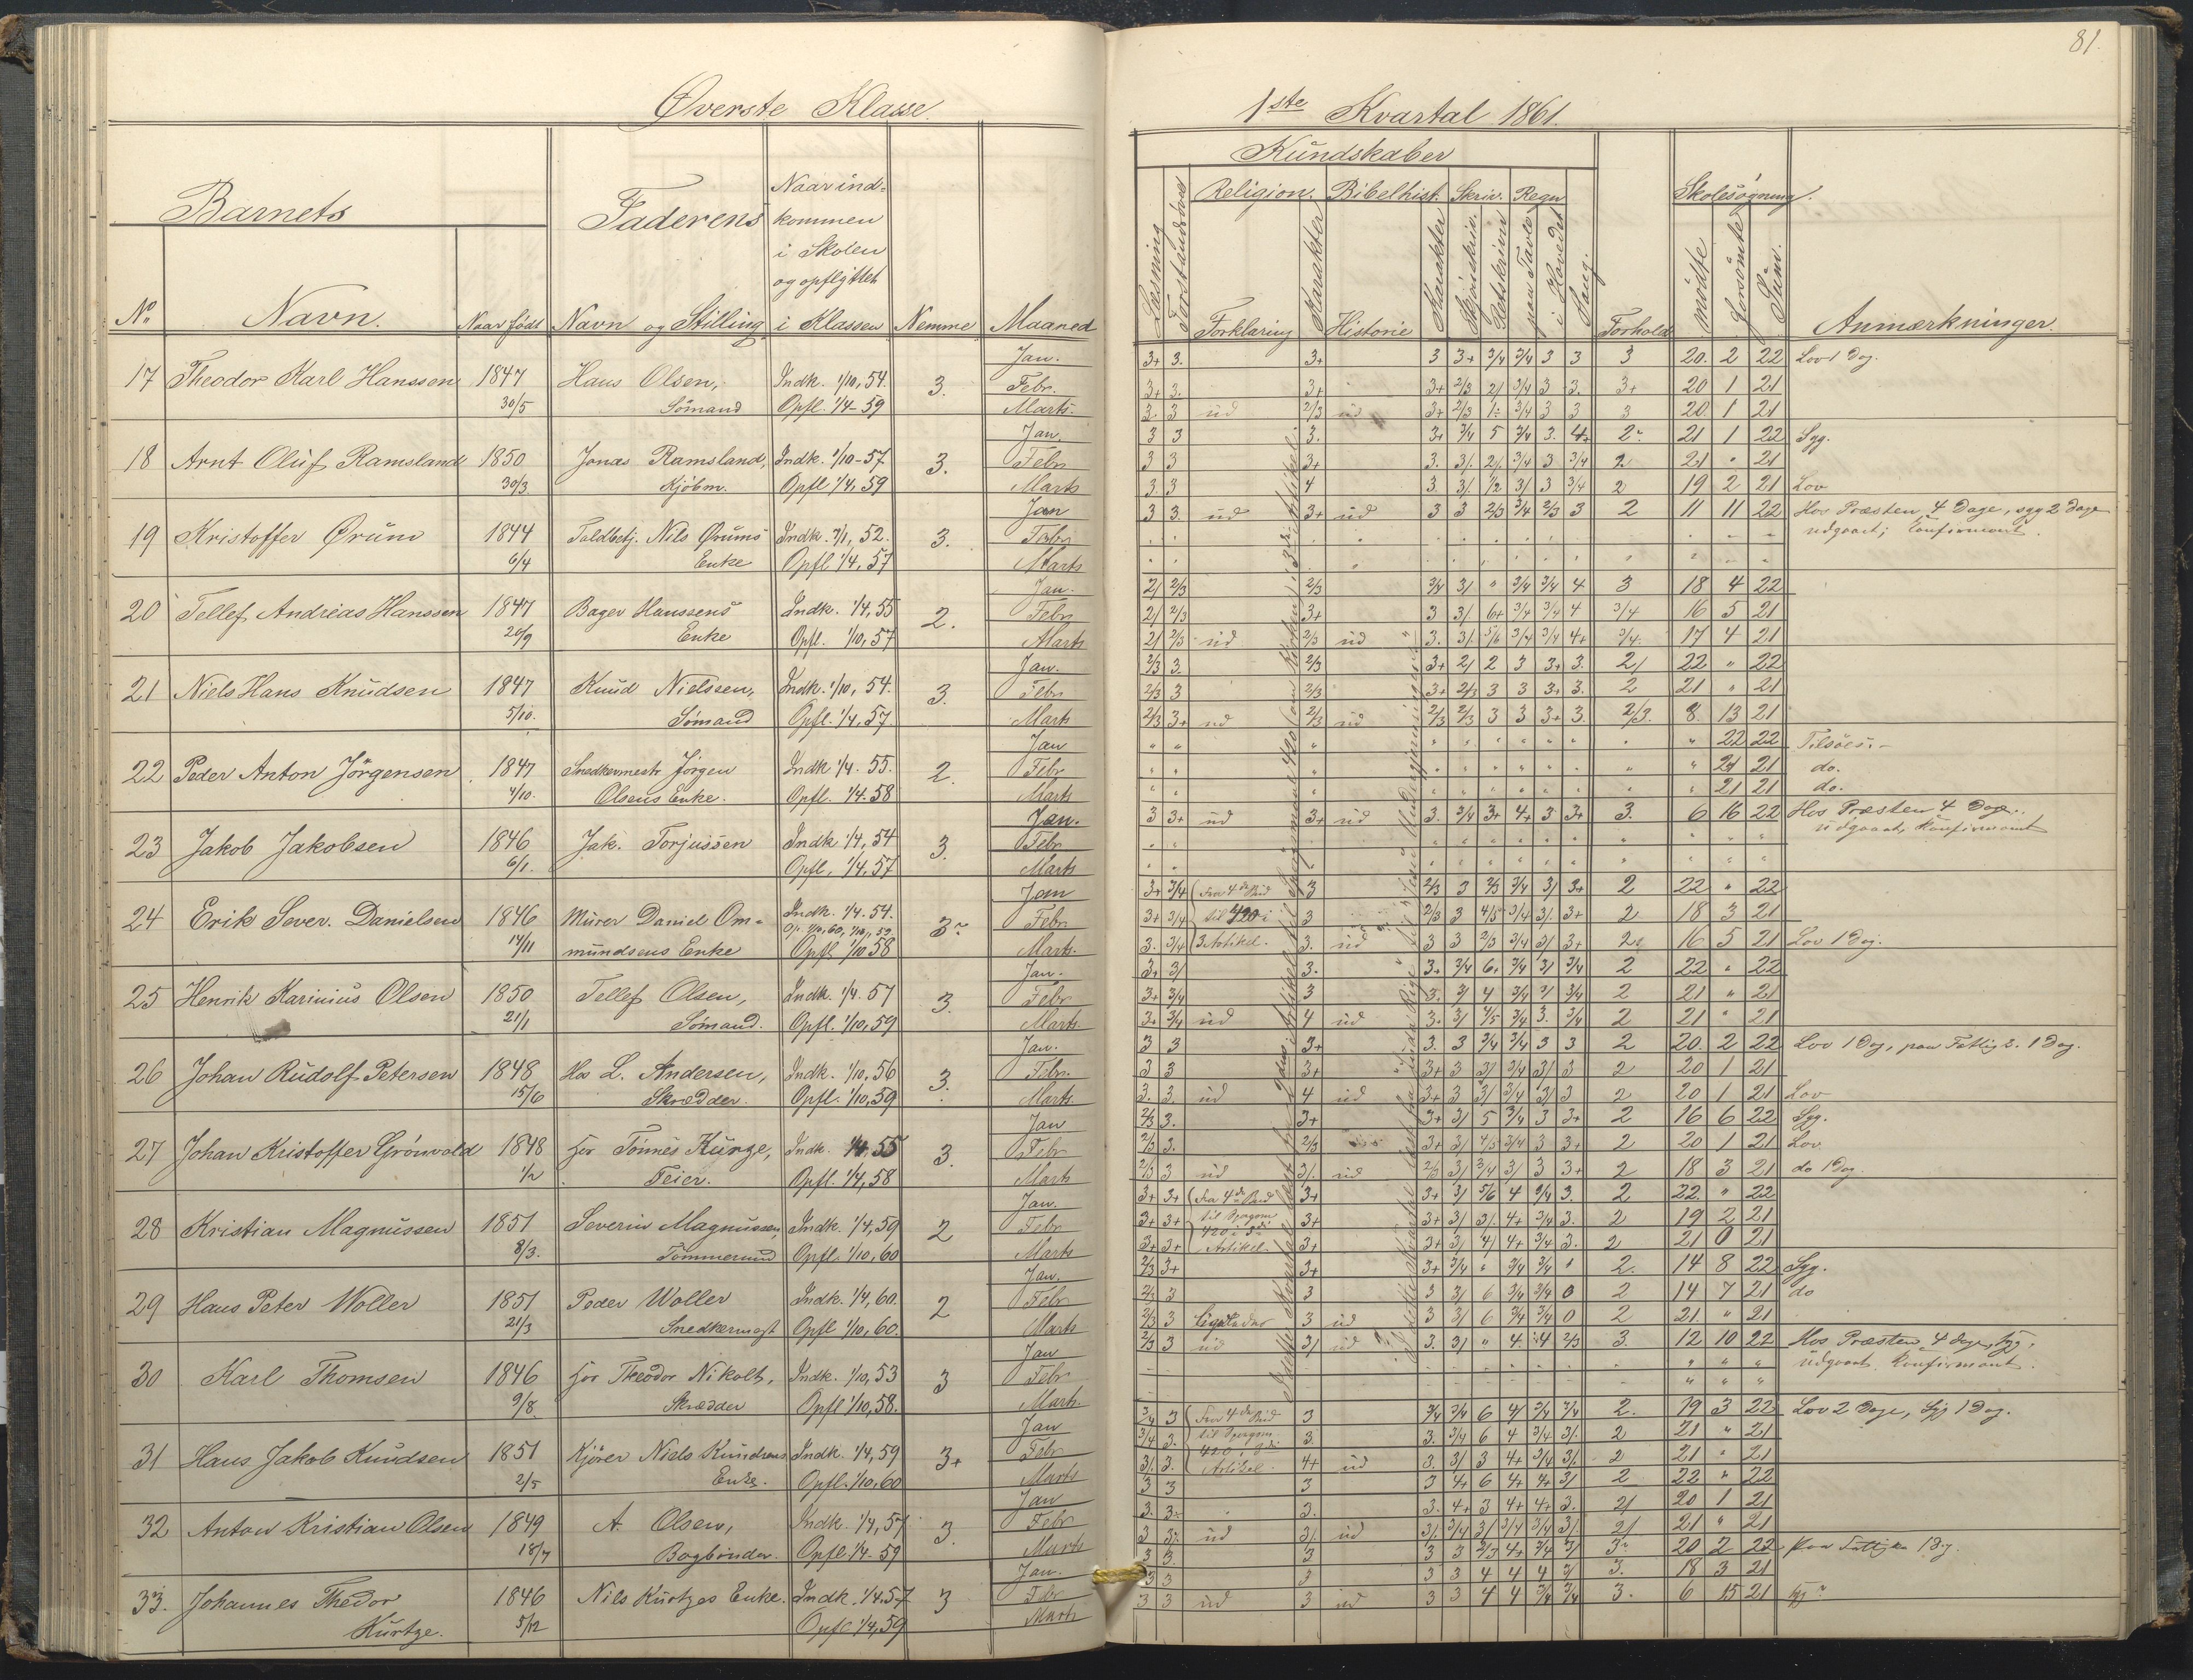 81.
Øverste Klasse.
1ste Kvartal 1861.
Barnets
Faderens
Naar ind-
kommen
i Skolen
og opflyttet
i Klassen
No Navn. Naar født Navn og Stilling Nemme Maaned
Kundskaber
Læsning Forstandsøvel Religion. Bibelhist. Skriv. Regn Skolesøgning.
Forklaring Karakter Historie Karakter Skjøndskriv. Retskrivn paa Tavle i Hovedet Sang. Forhold mødte forsømte Sum. Anmærkninger.
17 Theodor Karl Hanssen 1847 Hans Olsen, Indk. 1/10, 54. 3. Jan. 3+ 3. 3+ 3 3+ 3/4 3/4 3 3 3 20. 2 22 Lov 1 Dag.
30/5 Sömand Opfl. 1/4-59 Febr. 3+ 3. 3+ 3+ 2/3 2/ 3/4 3 3. 3+ 20 1 21
Marts. 3. 3 ud 2/3 ud 3+ 2/3 1÷ 3/4 3 3 3 20. 1 21
18 Arnt Oluf Ramsland 1850 Jonas Ramsland, Indk. 1/10-57. 3. Jan. 3 3 3. 3+ 3/4 5 3/4 3. 4+ 2 21 1 22 Syg.
30/3 Kjöbm. Opfl 1/4, 59 Febr 3 3 3+ 3. 3/. 2/. 3/4 3 3/4 2 21 " 21
Marts 3. 3 4 3. 3/. 1/2 3/. 3 3/4 2 19 2 21 Lov
19 Kristoffer Ørum 1844 Toldbetj. Nils Ørums Indk. 7/1, 52. 3. Jan 3 3. ud 3+ ud 3 3 2/3 3/4 2/3 3 2 11 11 22 Hos Præsten 4 Dage, syg 2 Dage
6/4 Enke Opfl 1/4, 57 Febr udgaaet; Confirmant.
Marts
20 Tellef Andreas Hanssen 1847 Bager Hanssens Indk. 1/4, 55 2. Jan. 2/ 2/3 2/3 3/4 3/ " 3/4 3/4 4 3 18 4 22
20/9 Enke Opfl. 1/10, 57 Febr 2/ 2/3 3+ 3 3/ 6+ 3/4 3/4 4 3/4 16 5 21
Marts 2/ 2/3 ud 2/3 ud 3. 3/. 5/6 3/4 3/4 4+ 3/4. 17 4 21
21 Niels Hans Knudsen 1847 Knud Nielssen, Indk. 1/10, 54. 3. Jan. 2/3 3. 2/3 3+ 2/ 2 3 3+ 3. 2/ 22 " 22
5/10. Sömand Opfl. 1/4, 57 Febr 2/3 3 2/3 3+ 2/3 3 3 3+ 3. 2 21 " 21
Marts 2/3 3+ ud 2/3 ud 2/3 2/3 3 3 3+ 3. 2/3. 8. 13 21
22 Peder Anton Jörgensen 1847 Snedkermestr Jörgen Indk 1/4. 55. 2. Jan " 22 22 Tilsöes.
4/10. Olsens Enke. Opfl. 1/4. 58 Febr " 21 21 do.
Marts " 21 21 do.
23 Jakob Jakobsen 1846 Jak. Torjussen Indk 1/4, 54 3. Jan. 3 3+ ud 3+ ud 3. 3/4 3+ 4+ 3 3+ 3. 6 16 22 Hos Præsten 4 Dage.
6/1. Opfl, 1/4, 57 Febr udgaaet, Konfirmant
Marts
24 Erik Sever. Danielsen 1846 Murer Daniel Om- Indk. 1/4. 54. 3 Jan 3+ 3/4 Fra 4de Bud 3 2/3 3 2/3 3/4 3/ 3+ 2 22 " 22
14/11 mundsens Enke Opfl 1/10 58 Febr 3+ 3/4 til 420 i 3 2/3 3 4/5 3/4 3/. 3+ 2 18 3 21
Marts. 3. 3/4 3 Artikel. 3. ud 3 3 2/3 3/4 3/ 3+ 2 16 5 21 Lov 1 Dag.
25 Henrik Karinius Olsen 1850 Tellef Olsen, Indk. 1/4. 57 3. Jan. 3+ 3/ 3. 3+ 3/4 6. 3/4 3/ 3/4 2 22 " 22
21/1 Sömand. Opfl. 1/10, 59 Febr 3+ 3/4 3 3. 3/ 4 3/4 3/ 3/4 2 21 " 21
Marts. 3+ 3/4 ud 4 ud 3. 3/ 4/5 3/4 3. 3/4 2 21 " 21
26 Johan Rudolf Petersen 1848 Hos L. Andersen, Indk. 1/10, 56 3. Jan. 3 3 3+ 3. 3 3/4 3/4 3 3 2 20. 2 22 Lov 1 Dag, paa Fattig. 1 Dag.
15/6 Skrædder. Opfl. 1/10, 59 Febr. 3 3 3+ 3+ 3 3/ 3/4 3/ 3 2 20 1 21
Marts 3. 3. ud 4 ud 3+ 3 3/ 3/4 3/ 3 2 20 1 21 Lov
27 Johan Kristoffer Grönvold 1848 for Tönnes Kurtze, Indk. 1/4, 55 3. Jan 2/3 3. 3+ 3+ 3/ 5 3/4 3 3+ 2 16 6 22 Syg.
1/2 Feier. Opfl. 1/4, 58 Febr 2/3 3. 2/3 3+ 3/ 4/5 3/4 3 3+ 2 20 1 21 Lov
Marts 2/3 3 ud 3/. ud 2/3 3/ 3/4 3/ 3 3+ 2 18 3 21 do 1 Dag.
28 Kristian Magnussen 1851 Severin Magnussen, Indk. 1/4, 59 2 Jan. 3+ 3+ Fra 4de Bud 3+ 3+ 3/ 5/6 4 3/4 3. 2 22. " 22
8/3. Tömmermd Opfl. 1/10, 60 Febr 3+ 3+ til Spørgsm 3+ 3+ 3/ 3/. 4+ 3/4 3. 2 19 2 21
Marts 3+ 3+ 420 i 3di Artikel. 3+ 3+ 3/ 4/ 4+ 3/4 3. 2 21 0 21
29 Hans Peter Woller 1851 Peder Woller Indk. 1/4, 60. 2 Jan. 2/3 3+ 3+ 3+ 3/4 " 3/4 3/4 " 2. 14 8 22 Syg.
21/3 Snedkermest Opfl 1/10, 60. Febr 2/3 3 3 3 3/ 6 3/4 3/4 0 2 14 7 21 do
Marts 2/3 3 ligeledes 3 ud 3 3/ 6 3/4 3/4 0 2 21. " 21
30 Karl Thomsen 1846 for Theodor Nikolt, Indk. 1/10, 53 3 Jan 2/3 3 ud 3/ ud 3. 3/ " 4. 4 2/3 3. 12 10 22 Hos Præsten 4 dage, syg.
9/8. Skrædder Opfl 1/10, 58. Febr udgaaet. Konfirmant.
Marts.
31 Hans Jakob Knudsen 1851 Kjörer Niels Knudsens Indk. 1/4, 59 3+ Jan 3/4 3 Fra 4de Bud 3 3/4 3/4 6 4/ 3/4 3/4 2. 19 3 22 Lov 2 Dage, Syg 1 Dag.
2/5 Enke. Opfl. 1/10, 60 Febr 3/4 3. til Spørgsm 3. 3. 3/4 6 4 3/4 3/. 2 21 " 21
Marts 3/. 3. 420 i 3di Artikel. 4+ ud 3. 3/ 3 4+ 3/4 3/. 2 21 " 21
32 Anton Kristian Olsen 1849 A. Olsen, Indk. 1/4, 57 3. Jan 3 3 3 3 4+ 6 4+ 4+ 3/ 2 22 " 22
18/7 Bogbinder. Opfl 1/4. 59 Febr 3. 3. 3. 3. 4+ 3 4+ 4+ 3. 2/ 20 1 21
Marts 3 3/. ud 3/. ud 3/. 3/4 3/ 3/4 3/4 3/ 2/ 21 " 21
33. Johannes Thedor 1846 Nils Kurtzes Enke. Indk. 1/4. 57 3 Jan. 3 3. 3 3 3 2/3 4+ 3/4 3/ 3 20 2 22 paa Fattig 1 Dg.
Kurtze. 5/12 Opfl 1/4, 59 Febr 3 3 3 3 3 4 4 4 3/ 3. 18 3 21
Marts 3 3 ud 3 ud 3 3 4 4 3/4 3/4 3. 6 15 21 syg